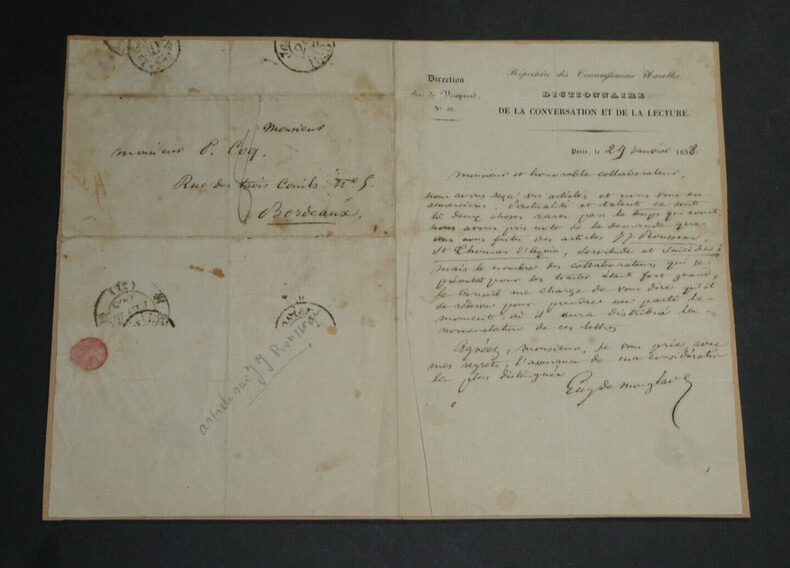 Monsieur
monsieur P. Coq,
Rue des trois Conils, N° 5
Bordeaux.
(75)
article sur J J Rousseau
Direction
Rue de Vaugirard,
N°
Répertoire des Connaissances Usuelles.
DICTIONNAIRE
DE LA CONVERSATION ET DE LA LECTURE.
Paris, le 29 janvier 1838.
Monsieur et honorable collaborateur,
nous avons reçu vos articles et nous vous en
remercions, d'actualité et talent ce sont
là deux choses rares par le temps qui court,
nous avons pris note de la demande que
vous nous faites des articles J J Rousseau,
St Thomas d'Aquin, Servitude et Suicide;
mais le nombre des collaborateurs qui se
présente pour les traiter étant fort grand,
le Conseil me charge de vous dire qu'il
se réserve pour prendre un parti le
moment où il aura distribué la
nomenclature de ces lettres
Agréez, monsieur, je vous prie avec
mes regrets, l'assurance de ma considération
la plus distinguée
Eug de monglave